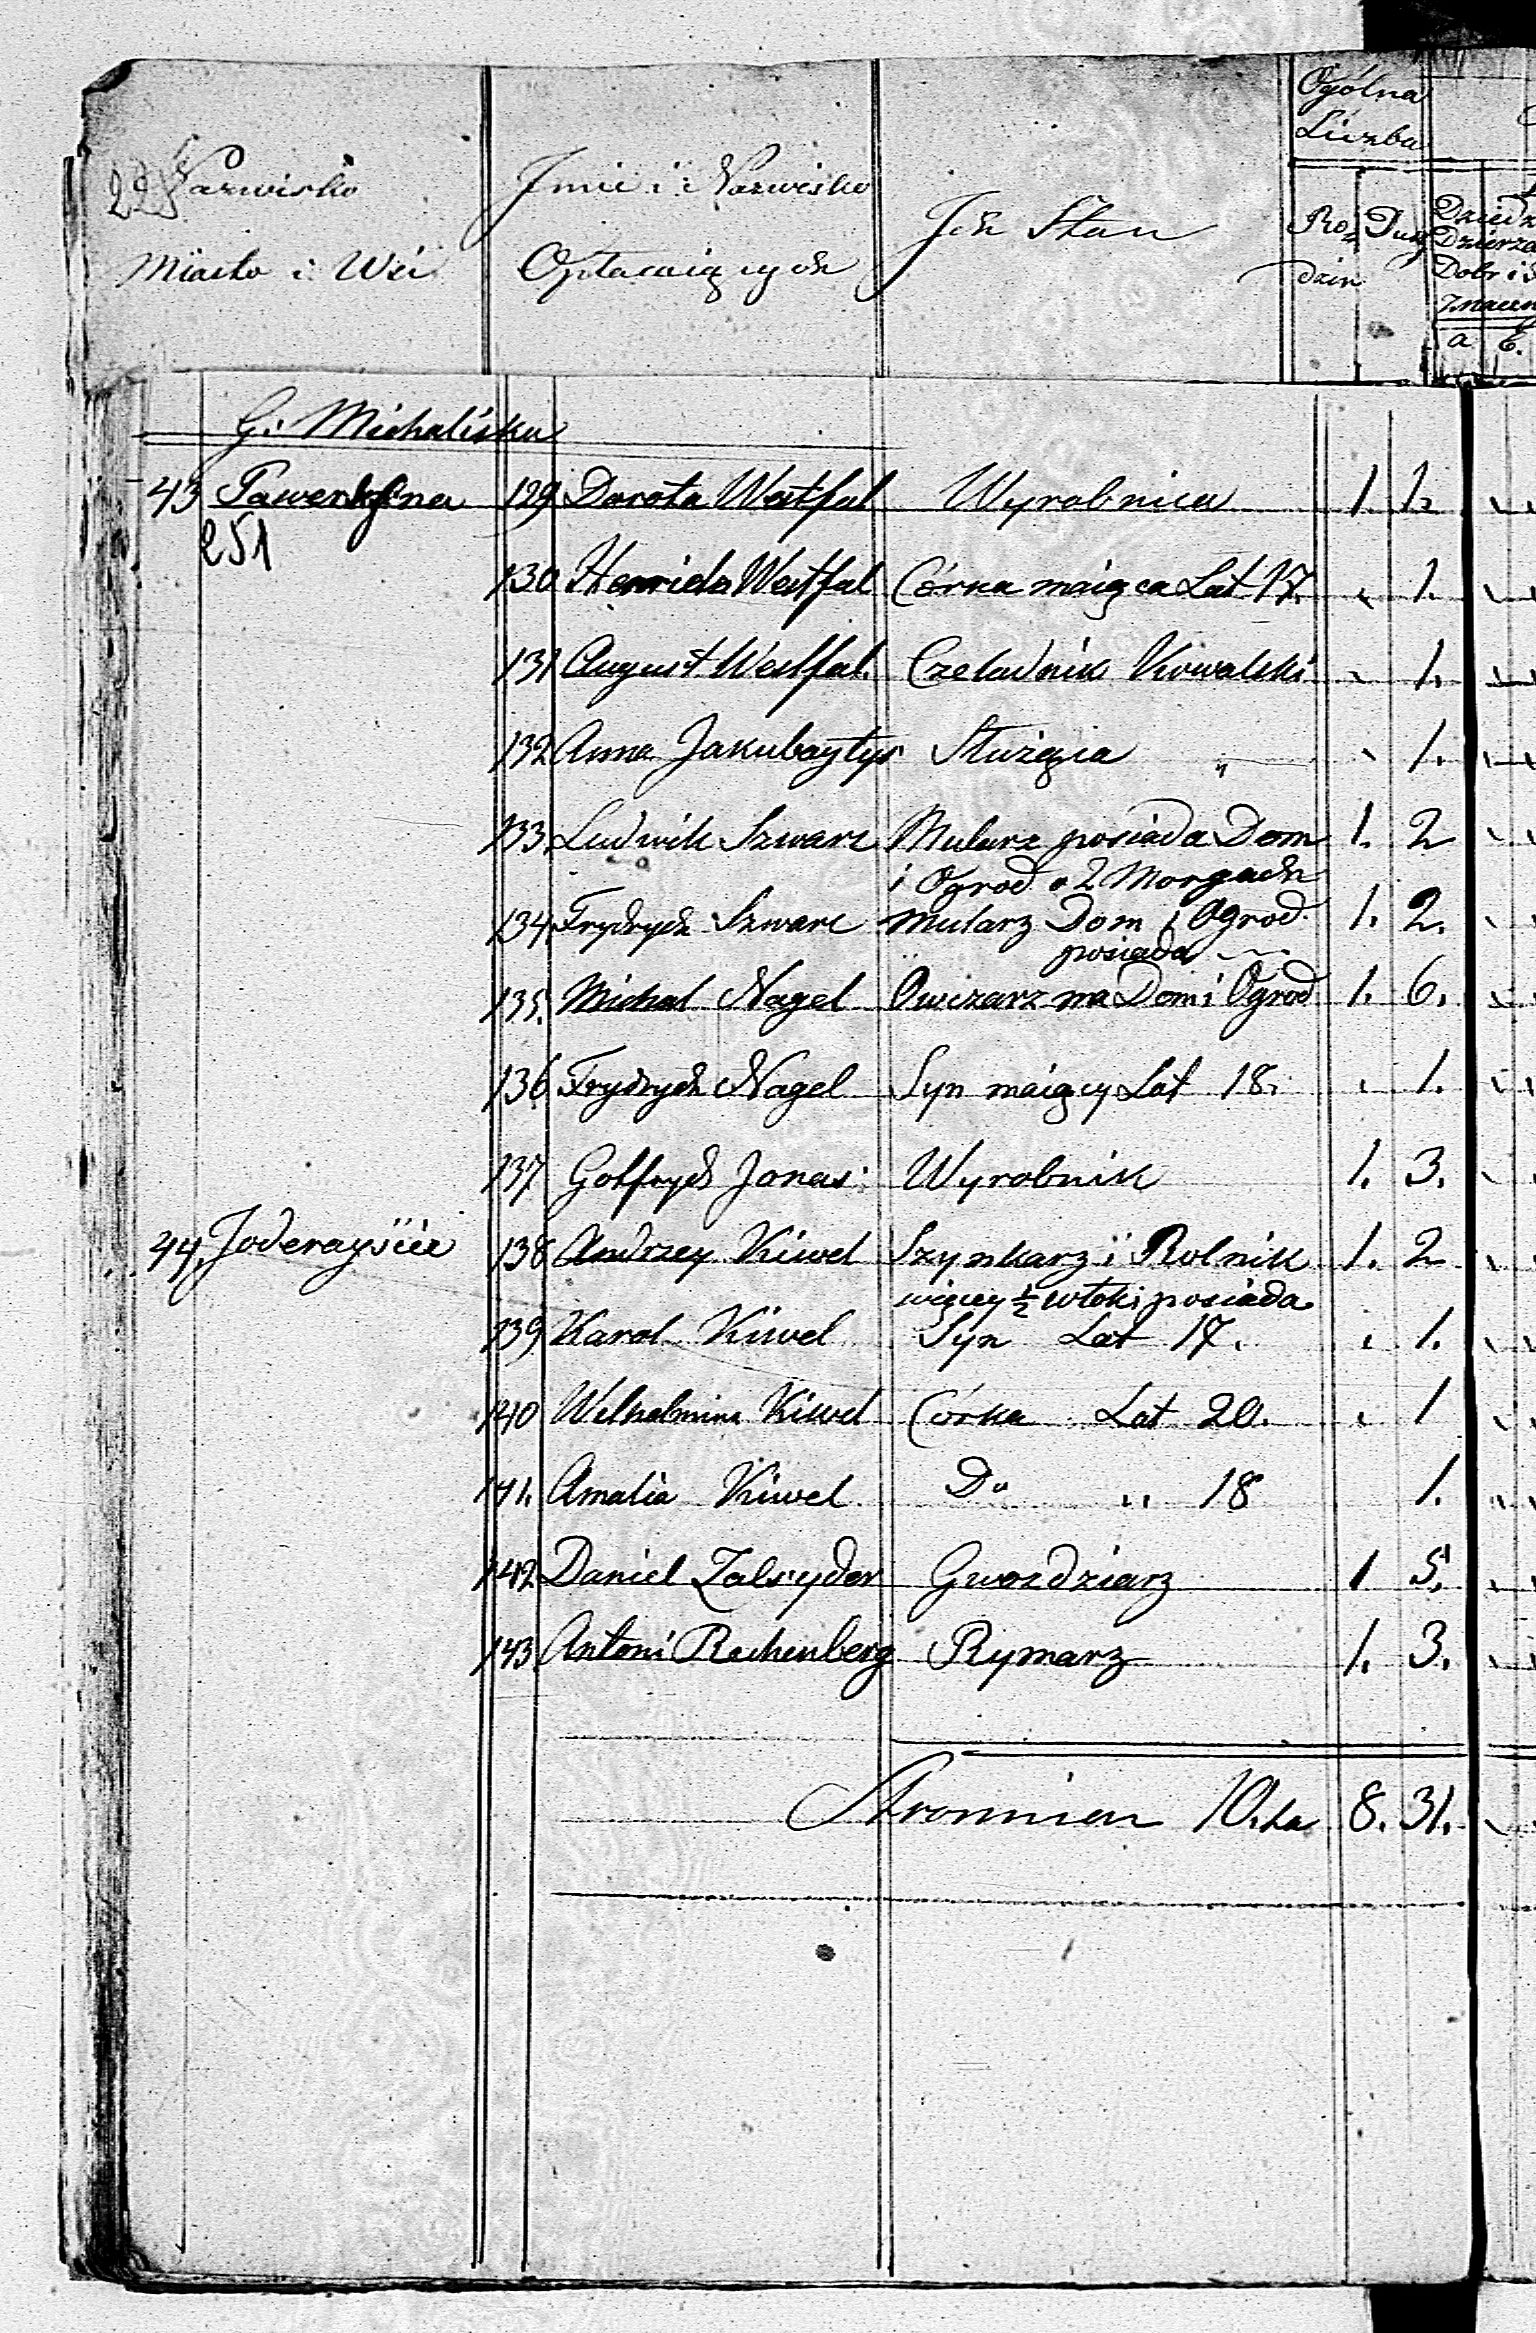 Nazwisko
Miasta i Wsi
Imie i Nazwisko
Opłacaiących
Ich Stan
Ogólna
Liczba
Ro=
dzin
Dusz
Dzierża
Dobr i
znaczn
a b.
G: Michaliszki
43 129 Dorota Westfal Wyrobnica 1. 1.
251
130 Westfal Córka maiąca Lat 17. " 1.
131 August Westfal. Czeladnik Kowalski " 1.
132 Anna Jakubaytys Służąca " " 1.
133. Ludwik Szwarc Mularz posiada Dom 1. 2
i Ogrod o 2 Morgach
134. Frydrych Szwarc Mularz Dom i Ogrod 1. 2.
posiada
135. Michal Nagel Owczarz ma Dom i Ogrod 1. 6.
136 Frydrych Nagel Syn maiący Lat 18. " 1.
137 Gotfryd Jonas Wyrobnik 1. 3.
44. 138 Andrzey Kiwel Szynkarz i Rolnik 1. 2
więcey ½ włoki posiada
139 Karol Kiwel Syn Lat 17. " 1.
140 Wilhelmina Kiwel Córka Lat 20. " 1
141. Amalia Kiwel Do " 18 1.
142 Daniel Gwozdziarz 1 5.
143. Antoni Rechenberg Rymarz 1. 3.
8. 31.